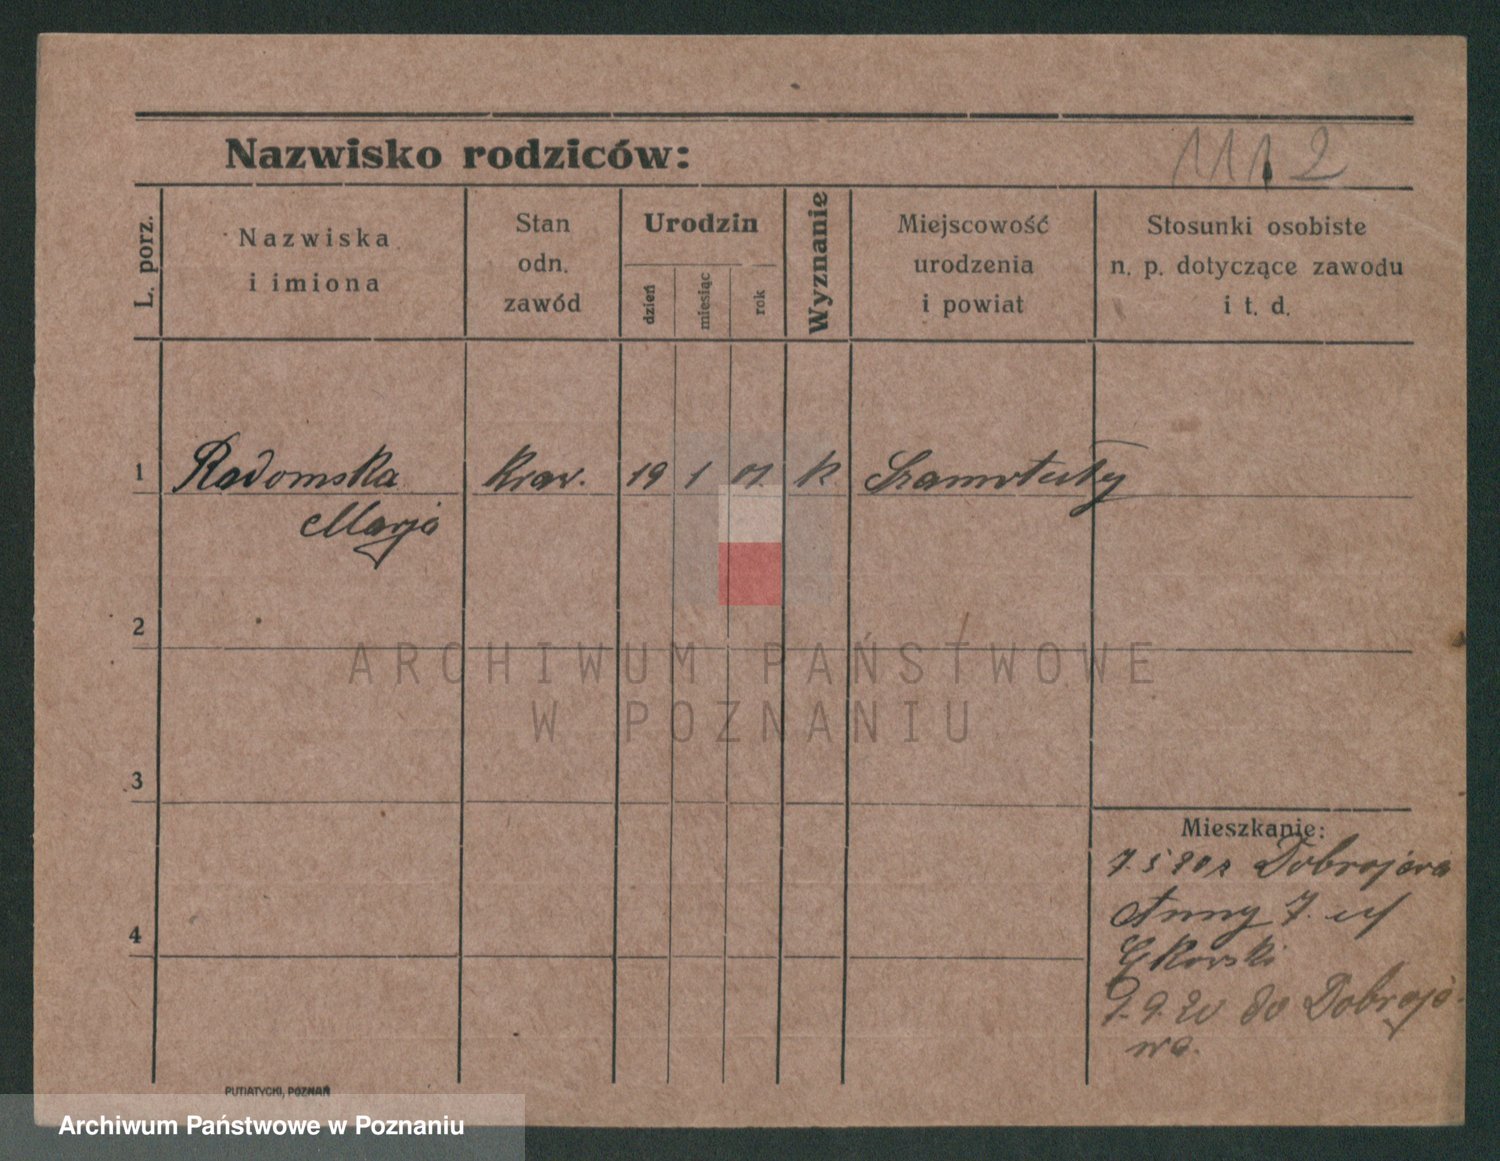 Nazwisko rodziców:
1112
L. porz.
Nazwiska
i imiona
Stan
odn.
zawód
Urodzin
dzień
miesiąc
rok
Wyznanie
Miejscowość
urodzenia
i powiat
Stosunki osobiste
n. p. dotyczące zawodu
i t. d.
1 Radomska Kraw. 19 1 01 k Szamotuły
Marja
2
ARCHIWUM PAŃSTWOWE
W POZNANIU
3
4
Mieszkanie:
7.5 20 z Dobrojewa
Anny 7.
9.9.20 do Dobroje-
wa.
PUTIATYCKI, POZNAŃ
Archiwum Państwowe w Poznaniu